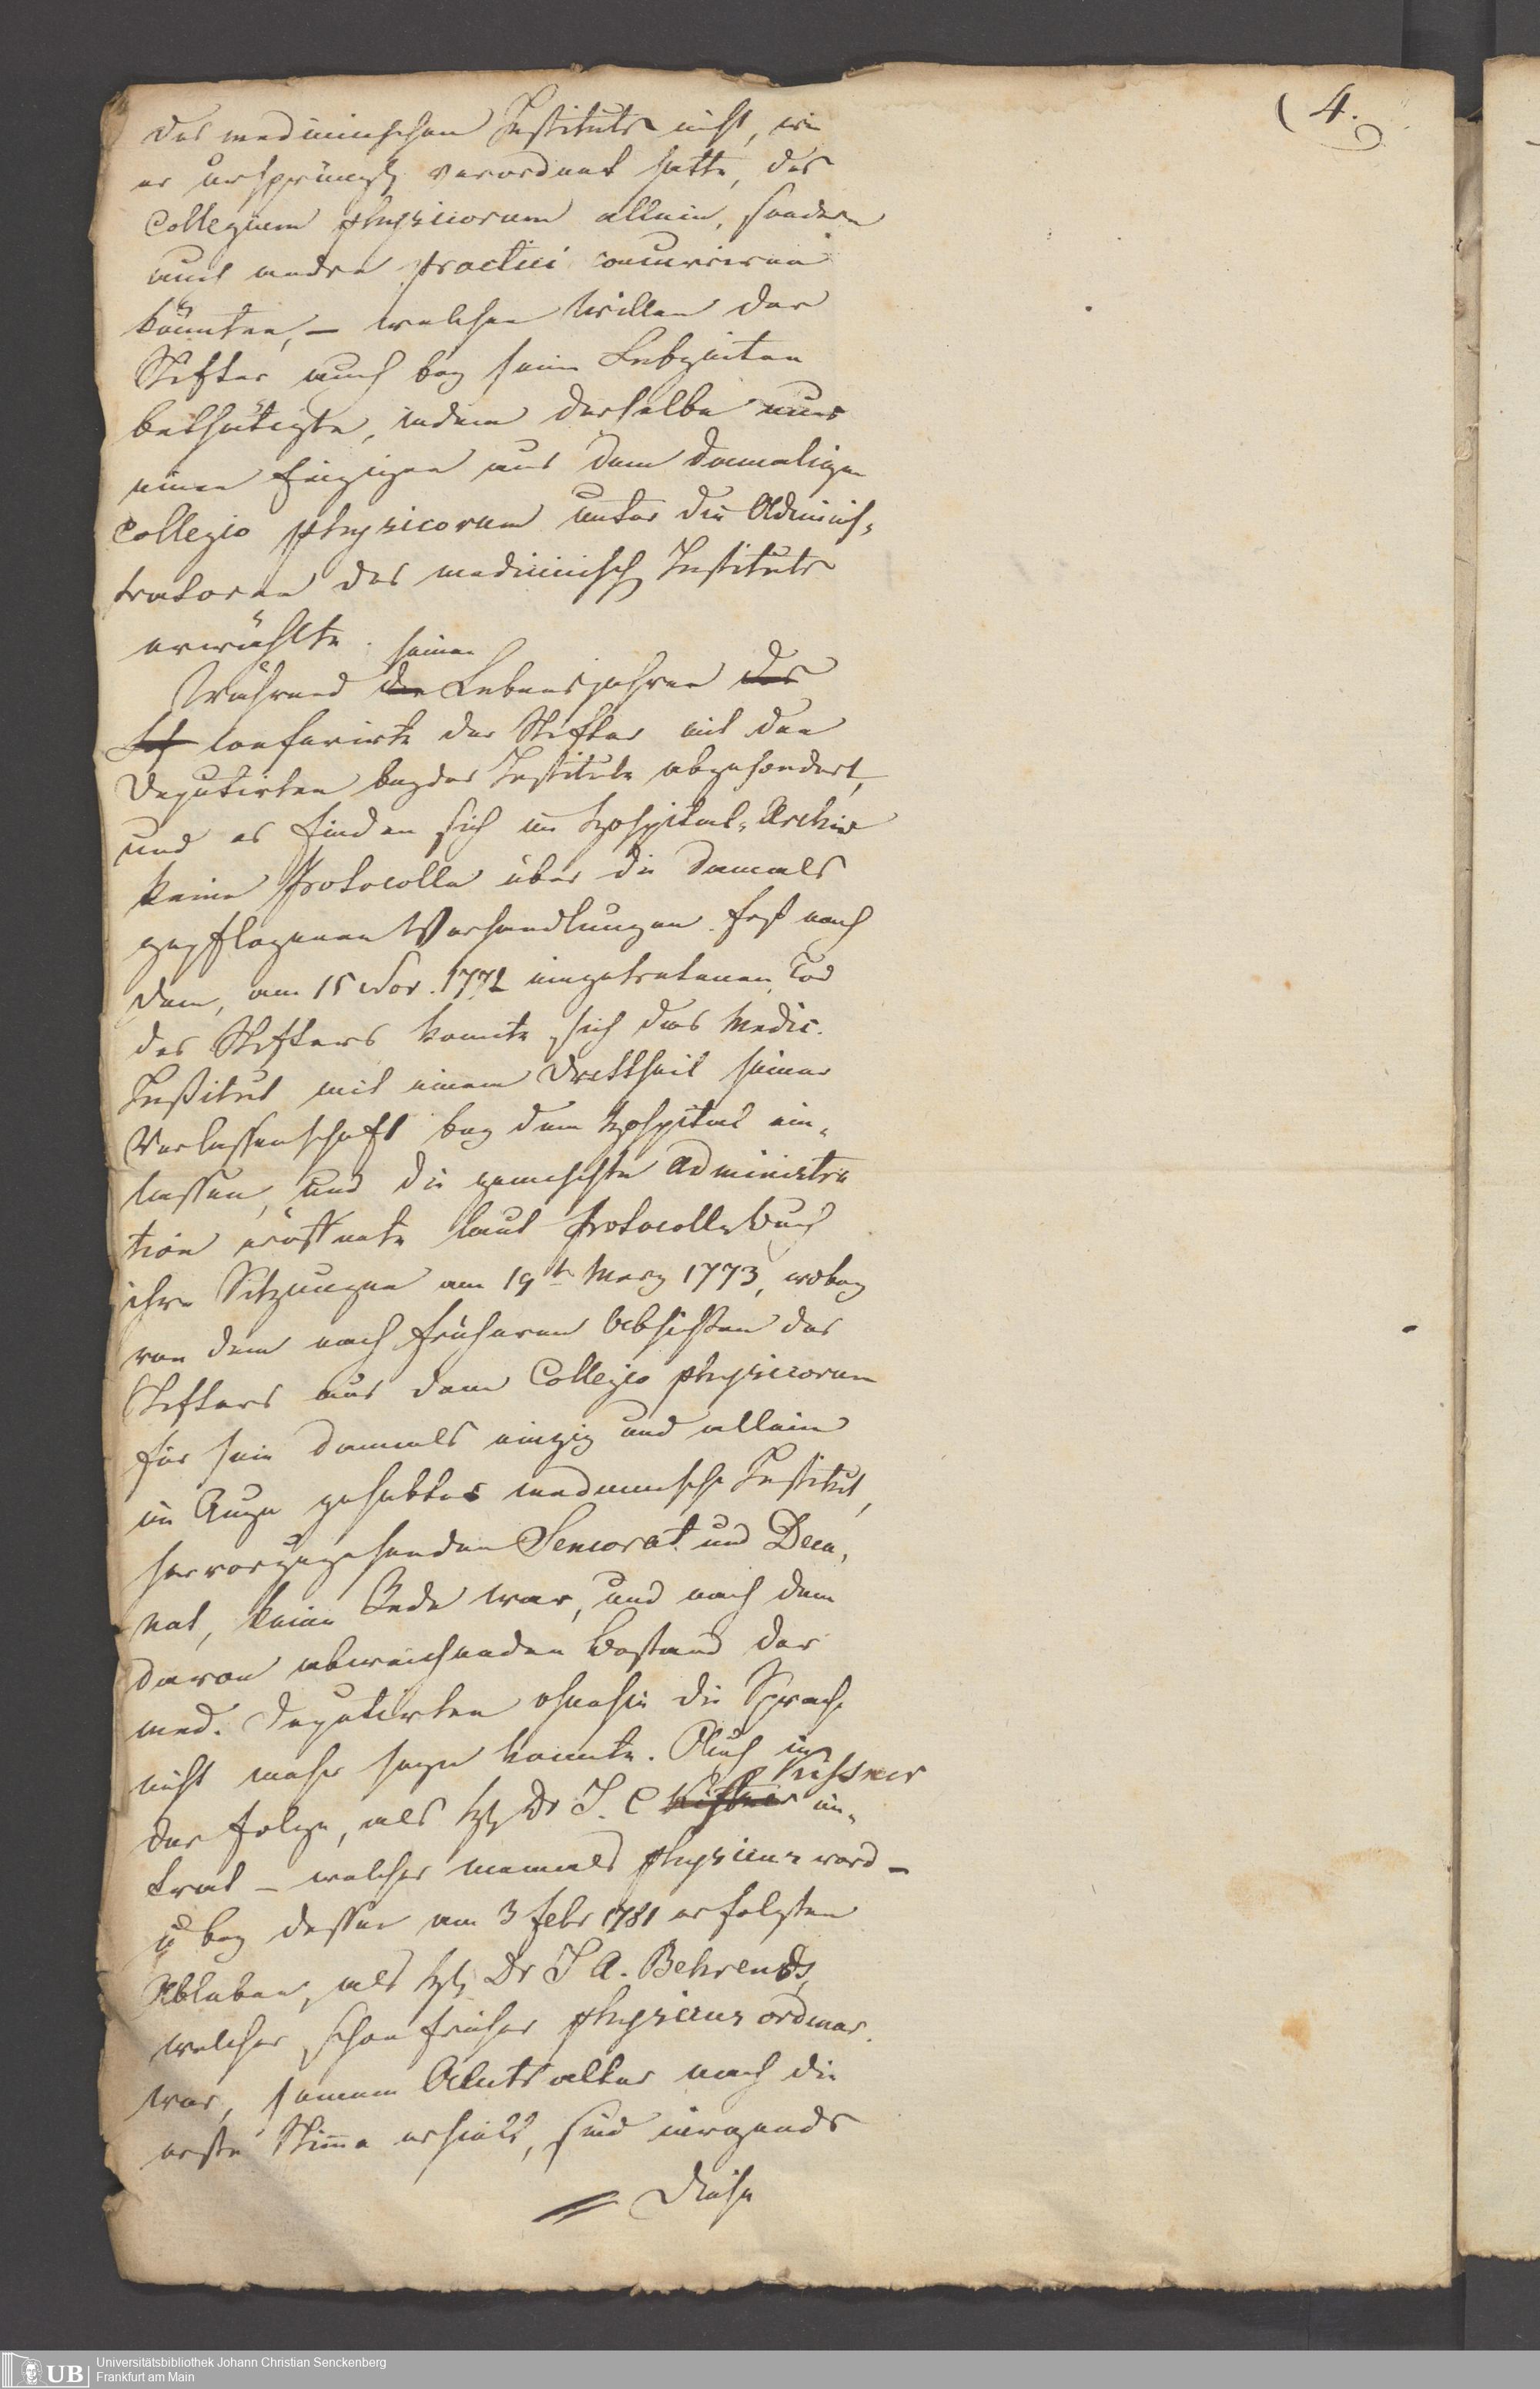 (4.
des medicinischen Instituts nicht, wie
er ursprüngl. verordnet hatte, das
Collegium physicorum allein, sondern
auch andre practici concurriren
könnten, – welchen Willen der
Stifter auch bey sein Lebzeiten
bethätigte, indem derselbe nur
einen Einzigen aus dem damaligen
Collegio physicorum unter die Adminis-
tratoren des medicinisch Instituts
erwählte.
Während die seinen Lebensjahren des
conferirte der Stifter mit den
Deputirten beyder Institute abgesondert,
und es finden sich im Hospital-Archiv
keine Protocolle über die damals
gepflogenen Verhandlungen. Erst nach
dem, am 15 Nov. 1772 eingetretenen Tod
des Stifters konnte sich das Medic.
Institut mit einem Drittheil seiner
Verlassenschaft bey dem Hospital ein-
lassen, und die gemischte Administra
tion eröffnete laut Protocollbuch
ihre Sitzungen am 19tn Merz 1773, wobey
von dem nach früheren Absichten des
Stifters aus dem Collegio physicorum
für sein damals einzig und allein
im Auge gehabtes medicinische Institut,
hervorzugehenden Seniorat und Deca-
nat, keine Rede war, und nach dem
davon abweichenden Bestand der
med. Deputirten ohnehin die Sprache
nicht mehr seyn konnte. Auch in
der Folge, als H. Dr J. C Kissner ein-
trat – welcher niemals physicus ward –
u bey dessen am 3 Febr 1781 erfolgten
Ableben, als H. Dr J A. Behrends,
welcher schon früher physicus ordinar.
war, seinem Amtsalter nach die
erste Stimme erhielt, sind nirgends
Diese
UB
Universitätsbibliothek Johann Christian Senckenberg
Frankfurt am Main